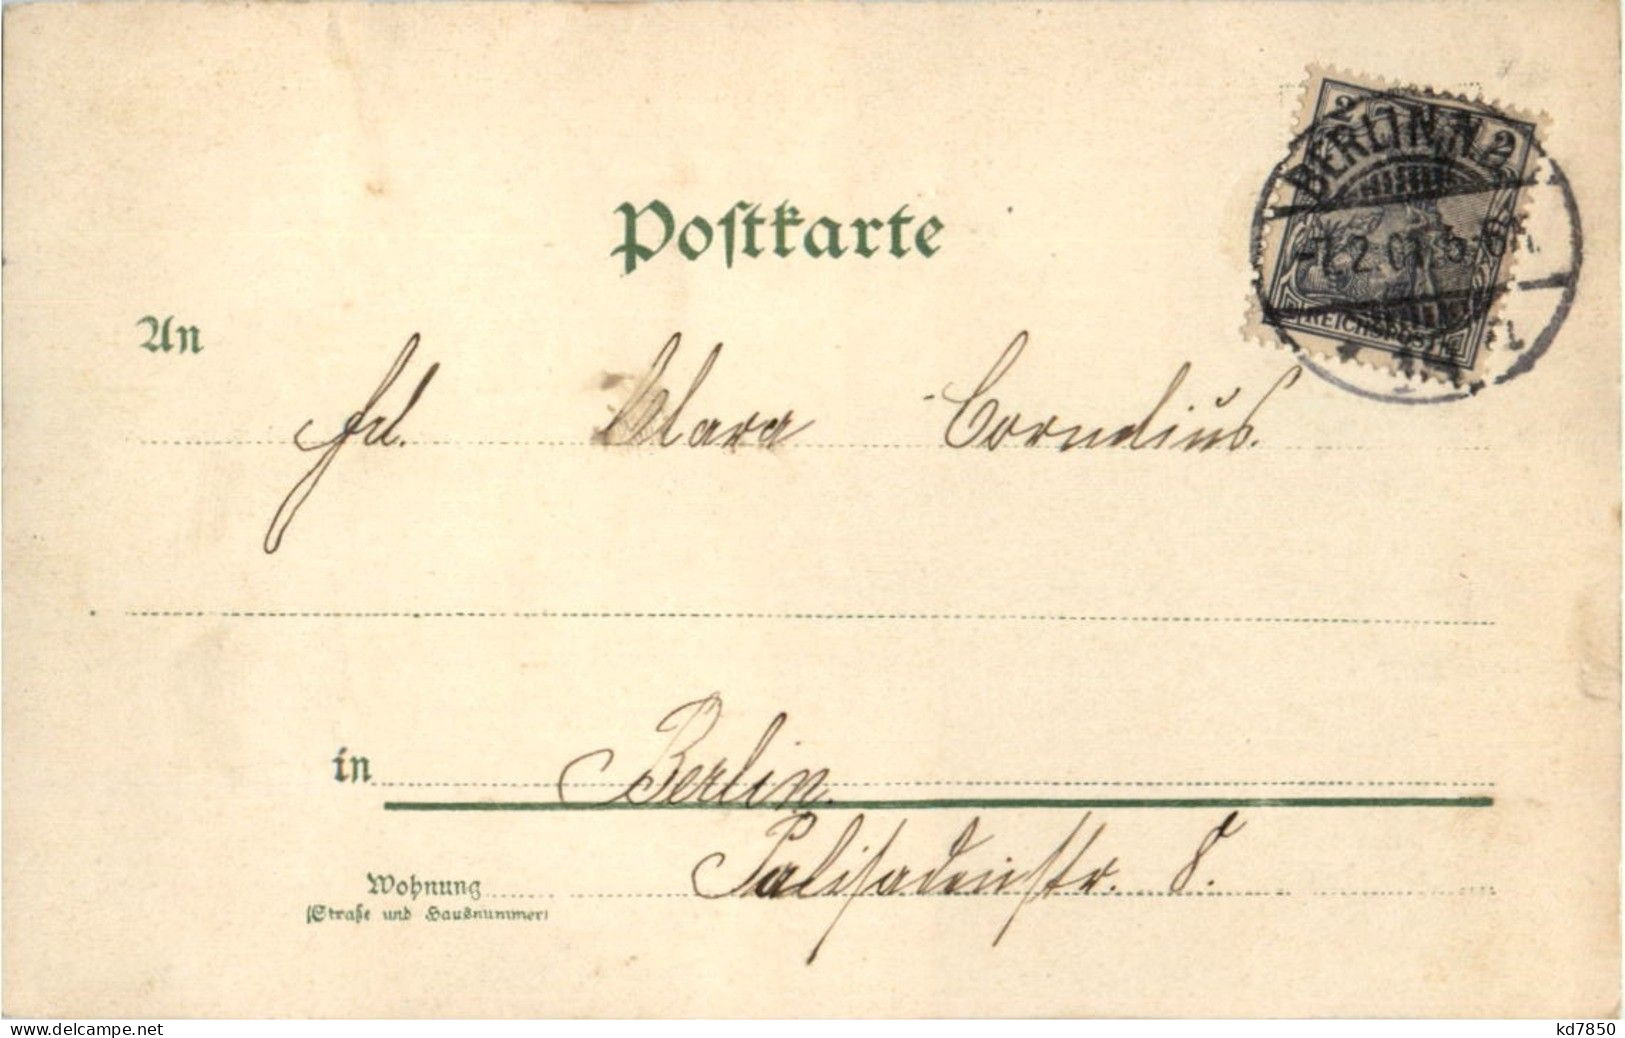 Postkarte
2 2
BERLIN, N.
-7.2.01.5-6N.
REICHSPOST
An
Frl. Klara Cornelius.
in Berlin.
Palisadenstr. 8.
Wohnung
(Straße und Hausnummer)
www.delcampe.net
kd7850